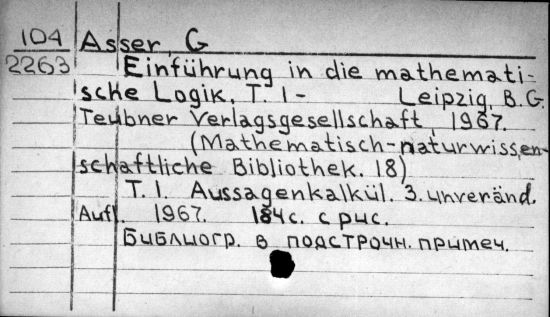 104 Asser, G
2263 Einführung in die mathemati-
sche Logik. T. 1- Leipzig, B.G.
Teubner Verlagsgesellschaft 1967.
(Mathematisch-naturwissen-
schaftliche Bibliothek. 18)
T. 1. Aussagenkalkül. 3. unveränd.
Aufl. 1967. 184 с. с рис.
Библиогр. в подстрочн. примеч.